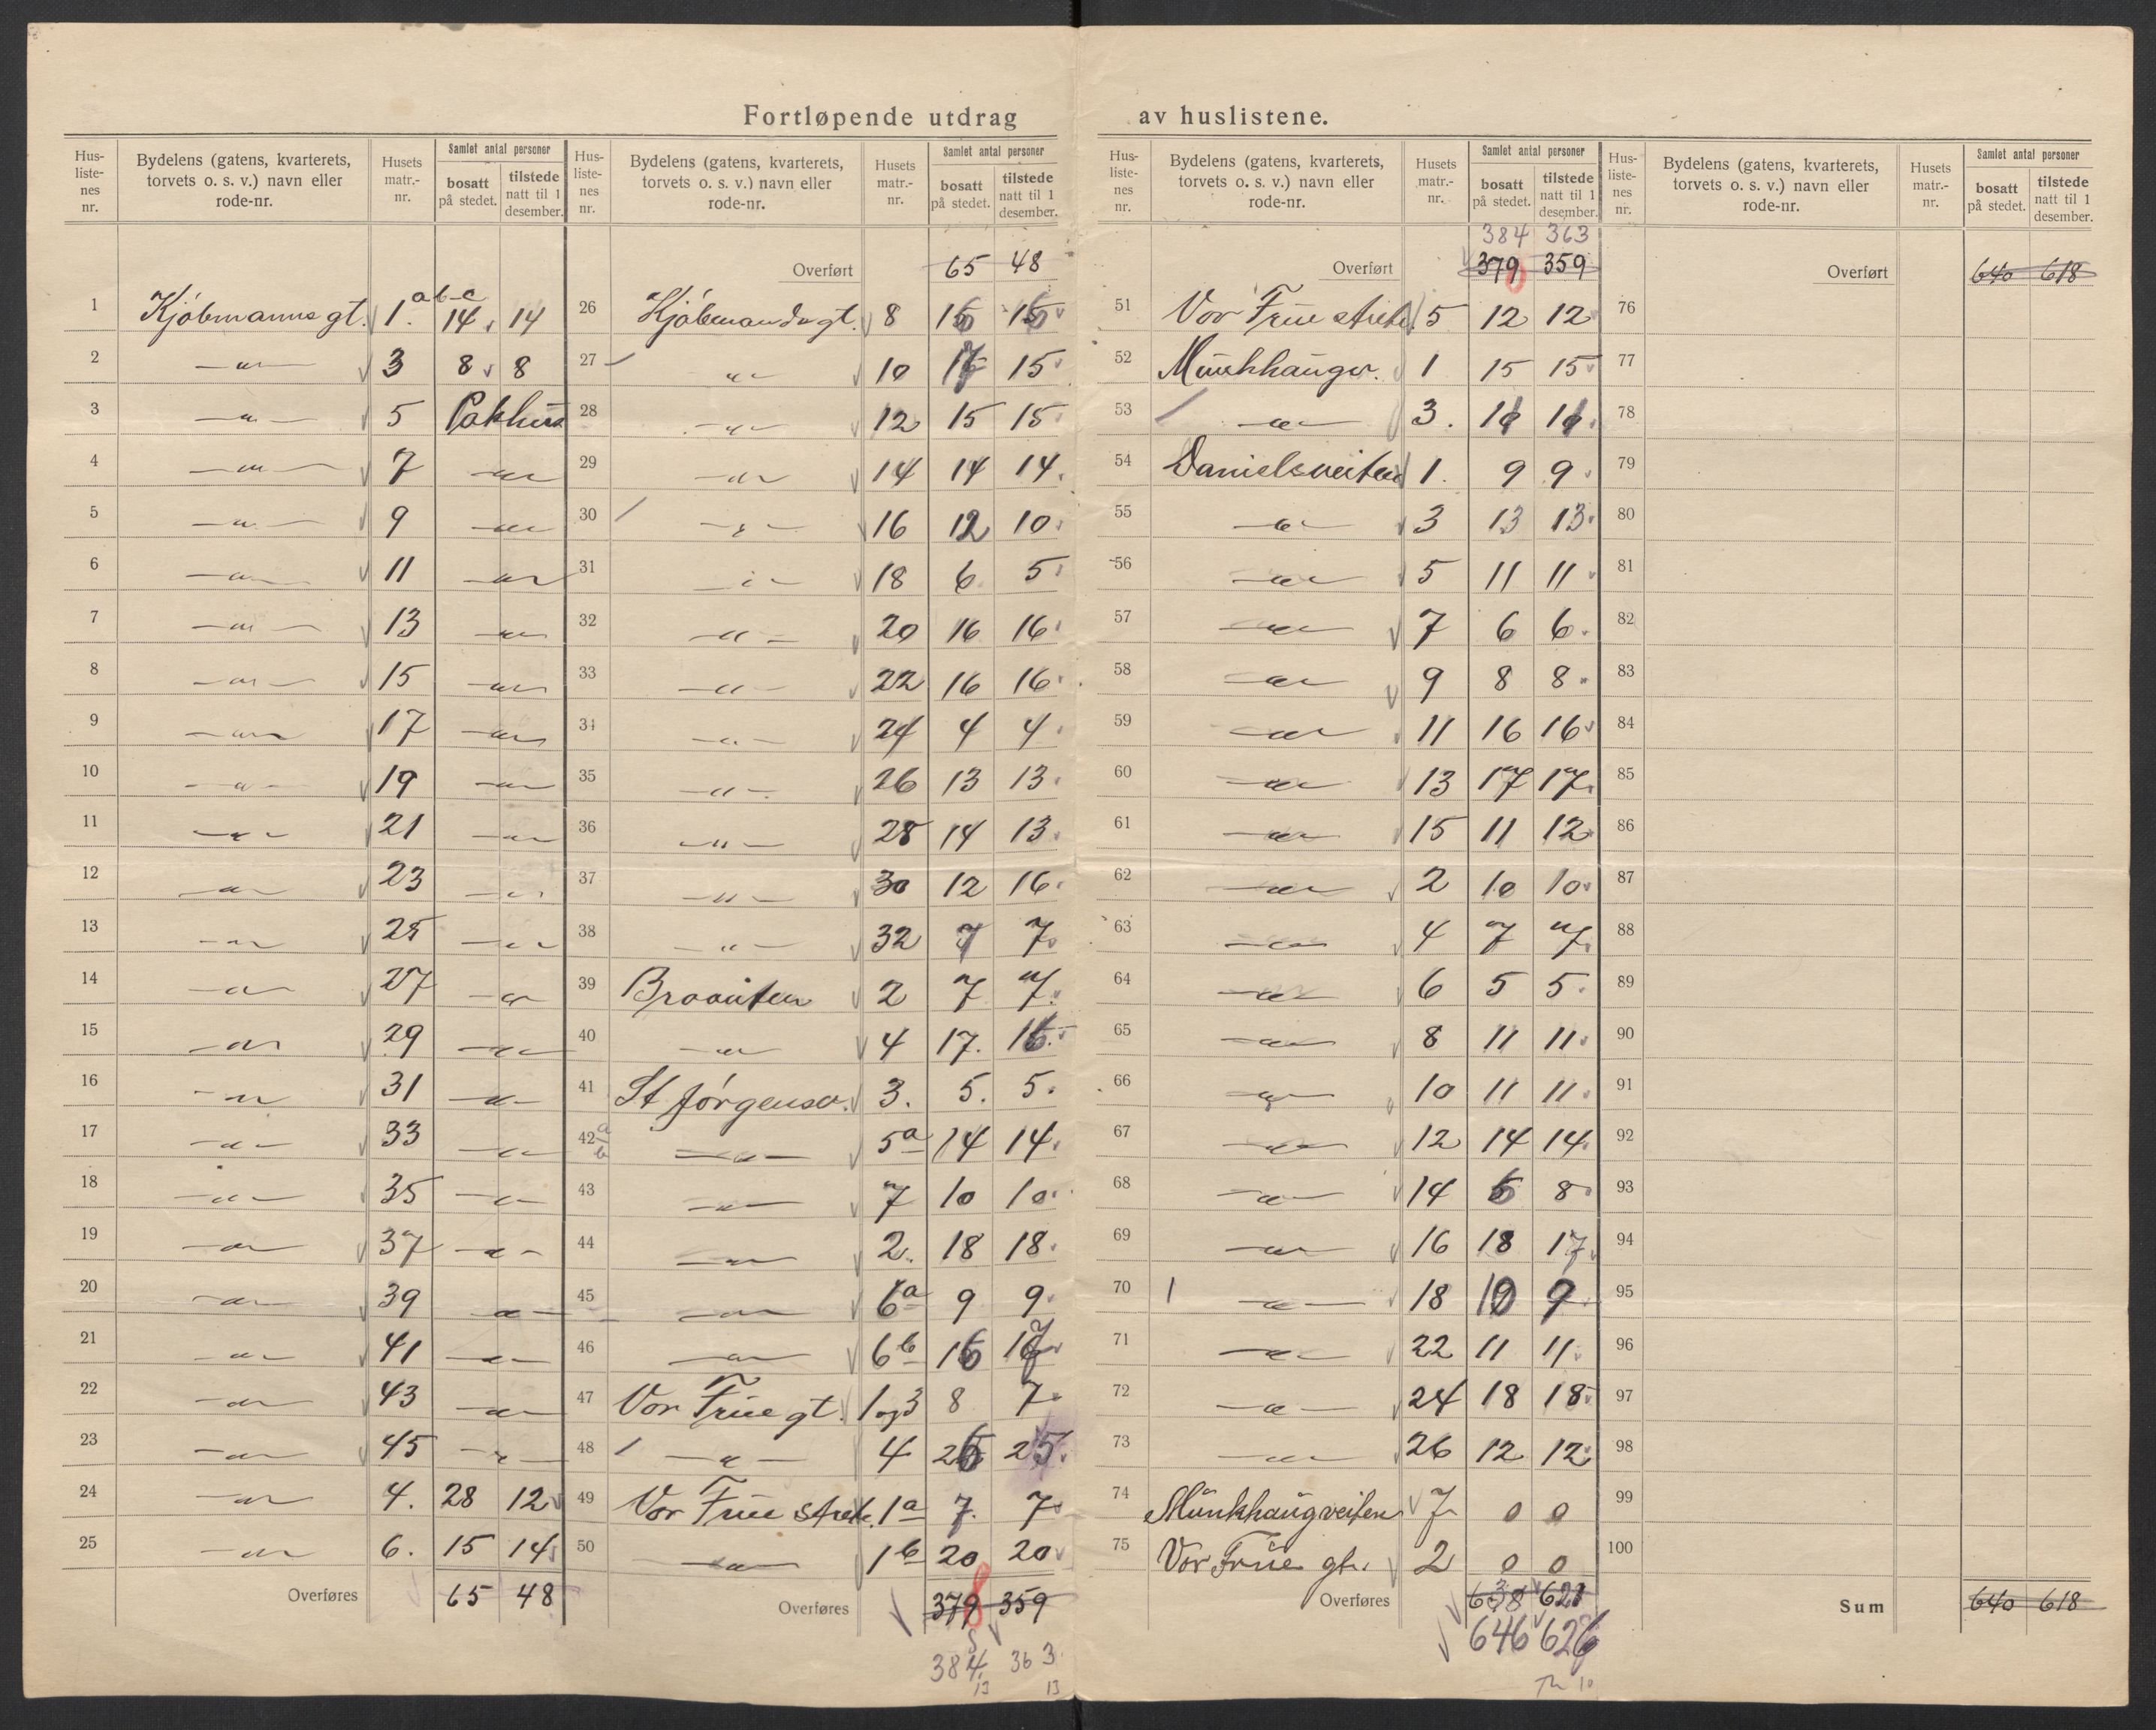 Fortløpende utdrag av huslistene.
Hus-listenes nr. | Bydelens (gatens, kvarterets, torvets o. s. v.) navn eller rode-nr. | Husets matr.-nr. | Samlet antal personer | bosatt på stedet. | tilstede natt til 1 desember.
1 Kjøbmanns gt. 1. a b-c 14 14
2 —"— 3 8 8
3 —"— 5 Pakhus
4 —"— 7 —"—
5 —"— 9 —"—
6 —"— 11 —"—
7 —"— 13 —"—
8 —"— 15 —"—
9 —"— 17 —"—
10 —"— 19 —"—
11 —"— 21 —"—
12 —"— 23 —"—
13 —"— 25 —"—
14 —"— 27 —"—
15 —"— 29 —"—
16 —"— 31 —"—
17 —"— 33 —"—
18 —"— 35 —"—
19 —"— 37 —"—
20 —"— 39 —"—
21 —"— 41 —"—
22 —"— 43 —"—
23 —"— 45 —"—
24 —"— 4. 28 12
25 —"— 6. 15 14
Overføres 65 48
Hus-liste-nes nr. | Bydelens (gatens, kvarterets, torvets o. s. v.) navn eller rode-nr. | Husets matr.-nr. | Samlet antal personer | bosatt på stedet. | tilstede natt til 1 desember.
Overført 65 48
26 Kjøbmandsgt. 8
27 —"— 10 15
28 —"— 12 15 15
29 —"— 14 14 14
30 —"— 16 12 10
31 —"— 18 6 5
32 —"— 20 16 16
33 —"— 22 16 16
34 —"— 24 4 4
35 —"— 26 13 13
36 —"— 28 14 13
37 —"— 30 12 16
38 —"— 32 7 7
39 2 7 7
40 —"— 4 17. 16
41 St Jørgensv. 3. 5. 5
42 a b —"— 5a 14 14
43 —"— 7 10 10
44 —"— 2. 18 18
45 —"— 6a 9 9
46 —"— 6b 16
47 Vor Frue gt. 1 og 3 8 7
48 —"— 4 25
49 Vor Frue stræte. 1a 7. 7
50 —"— 1b 20 20
Overføres 379 359
384 363
13 13
Hus-liste-nes nr. | Bydelens (gatens, kvarterets, torvets o. s. v.) navn eller rode-nr. | Husets matr.-nr. | Samlet antal personer | bosatt på stedet. | tilstede natt til 1 desember.
384 363
Overført 379 359
51 Vor Frue stræte. 5 12 12
52 Munkhaugv. 1 15 15
53 —"— 3.
54 Danielsveiten 1. 9 9
55 —"— 3 13 13
56 —"— 5 11 11
57 —"— 7 6 6
58 —"— 9 8 8
59 —"— 11 16 16
60 —"— 13 17 17
61 —"— 15 11 12
62 —"— 2 10 10
63 —"— 4 7 7
64 —"— 6 5 5
65 —"— 8 11 11
66 —"— 10 11 11
67 —"— 12 14 14
68 —"— 14 8
69 —"— 16 18 17
70 —"— 18 10 9
71 —"— 22 11 11
72 —"— 24 18 18
73 —"— 26 12 12
74 Munkhaugveiten 7 0 0
75 Vor Frue gt. 2 0 0
Overføres 638 621
646 626
Hus-liste-nes nr. | Bydelens (gatens, kvarterets, torvets o. s. v.) navn eller rode-nr. | Husets matr.-nr. | Samlet antal personer | bosatt på stedet. | tilstede natt til 1 desember.
Overført 640 618
76
77
78
79
80
81
82
83
84
85
86
87
88
89
90
91
92
93
94
95
96
97
98
99
100
Sum 640 618